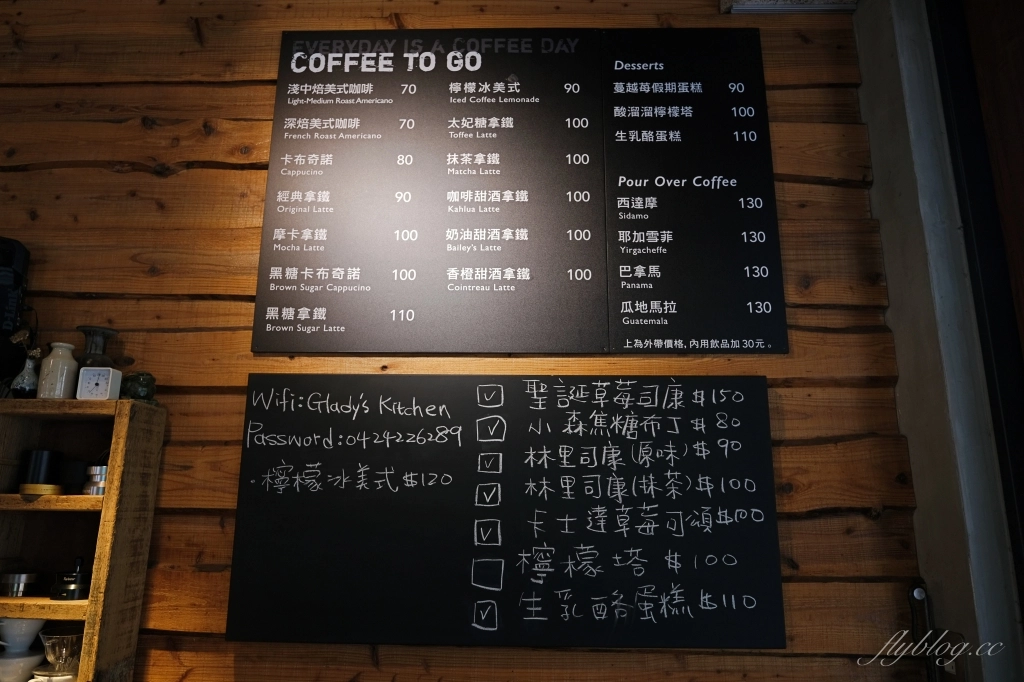 EVERYDAY IS A COFFEE DAY
COFFEE TO GO
淺中焙美式咖啡 70
Light-Medium Roast Americano
深焙美式咖啡 70
French Roast Americano
卡布奇諾 80
Cappucino
經典拿鐵 90
Original Latte
摩卡拿鐵 100
Mocha Latte
黑糖卡布奇諾 100
Brown Sugar Cappucino
黑糖拿鐵 110
Brown Sugar Latte
檸檬冰美式 90
Iced Coffee Lemonade
太妃糖拿鐵 100
Toffee Latte
抹茶拿鐵 100
Matcha Latte
咖啡甜酒拿鐵 100
Kahlua Latte
奶油甜酒拿鐵 100
Bailey's Latte
香橙甜酒拿鐵 100
Cointreau Latte
Desserts
蔓越莓假期蛋糕 90
酸溜溜檸檬塔 100
生乳酪蛋糕 110
Pour Over Coffee
西達摩 130
Sidamo
耶加雪菲 130
Yirgacheffe
巴拿馬 130
Panama
瓜地馬拉 130
Guatemala
上為外帶價格,內用飲品加30元。
Wifi:Glady's Kitchen
Password:0424226289
·檸檬冰美式$120
聖誕草莓司康$150
小森焦糖布丁$80
林里司康(原味)$90
林里司康(抹茶)$100
卡士達草莓可頌$100
檸檬塔 $100
生乳酪蛋糕$110
flyblog.cc